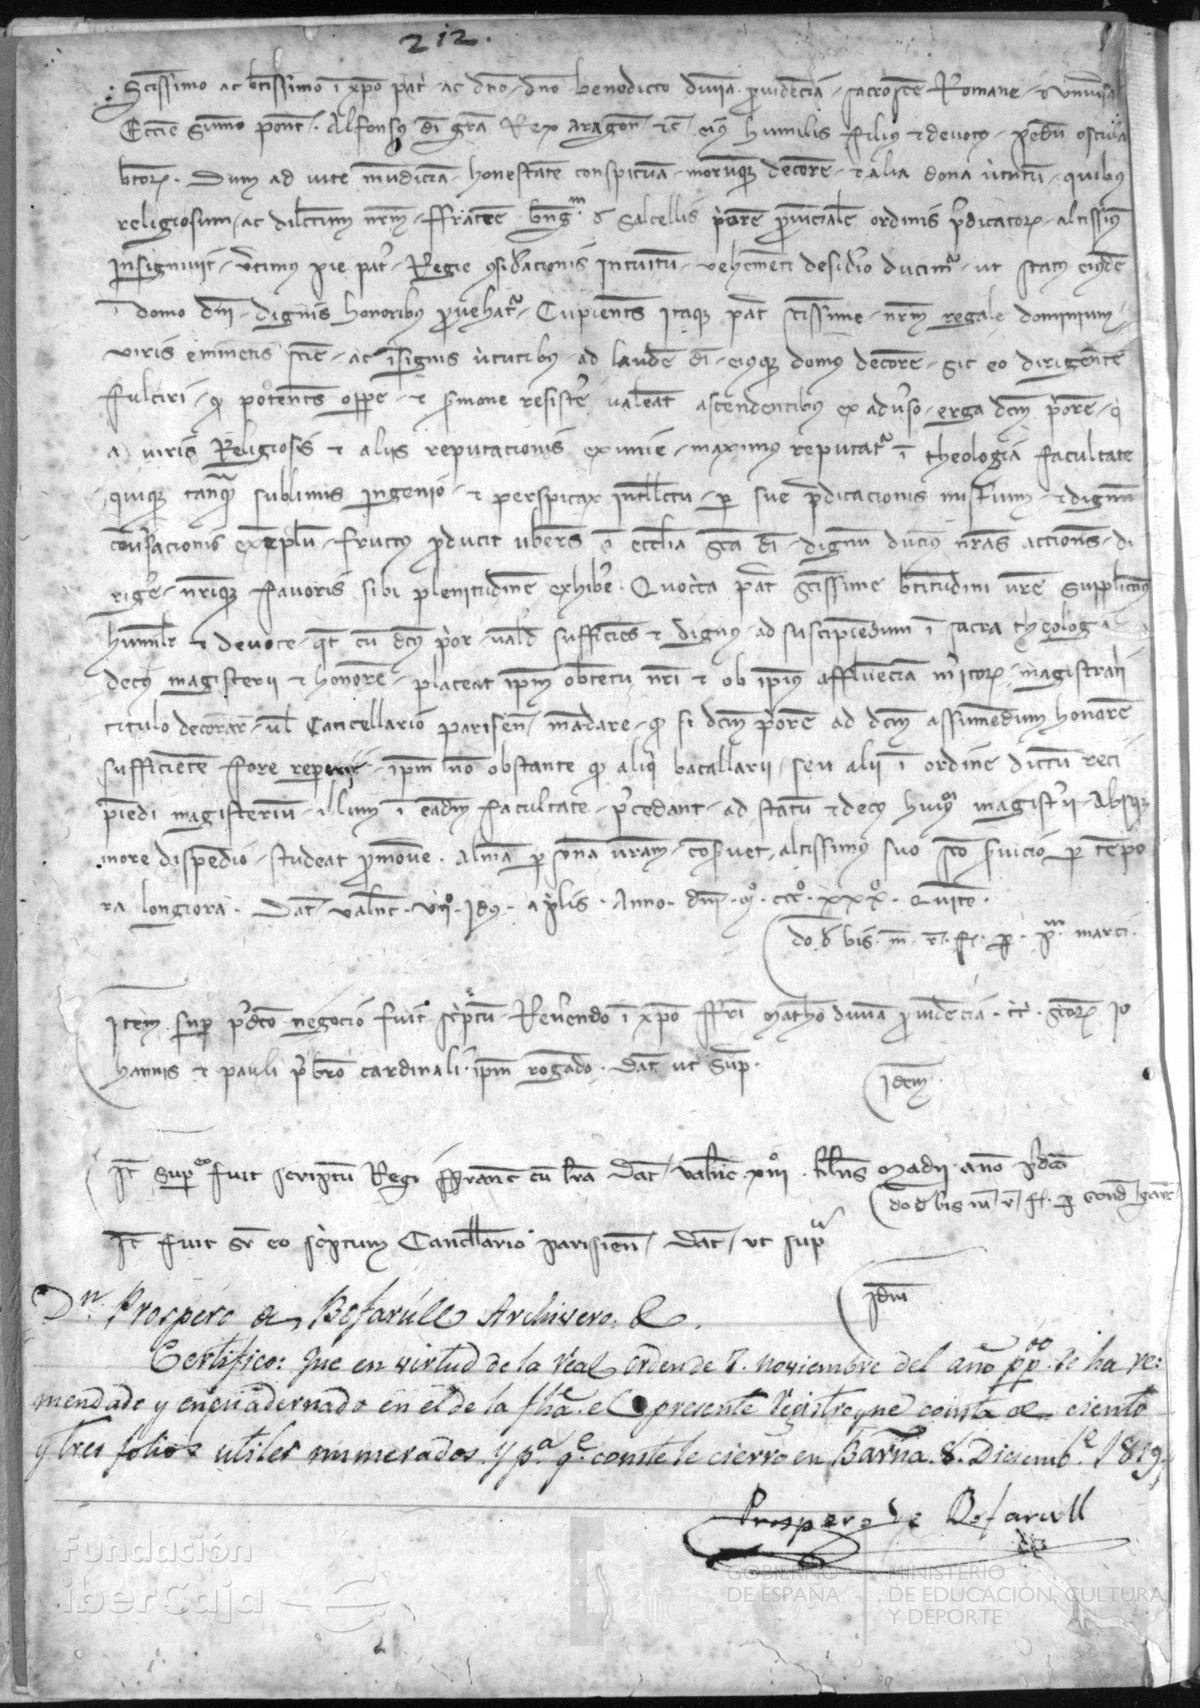 212.
Sctissimo ac btissimo i xpo patri ac dno dno benedicto divina providecia sacroscte Romane et universal
Eccie Summo pont. Alfonsus di gra Rex Aragon etc eius humilis filius et devotus pedu oscula
btorz. Dum ad vite mundicia honestate conspicua morumqz decore et alia dona virtutu quibus
religiosum ac dilectum nrm ffratre bng.m d Salcellis priore provinciale ordinis predicatorz altissimus
insignivit
domo dni dignis honoribus provehatr Cupientes itaqz pat sctissime nrm regale dominium
viris eminetis scie ac isignis virtutibus ad laude di eiusqz domus decore sic eo dirigente
fulciri q potentes oppe et smone resiste valeat ascendentibus ex adverso erga dcm priore q
a viris Religiosis et aliis reputacionis eximie maximus reputatr i theologia facultate
quiqz tanq sublimis ingenio et perspicax intllctu per sue pdicacionis misterium et dignu
covsacionis exeplu fructus producit uberes i ecclia scta di dignu ducimus nras acciones di
rige nrisqz favoris sibi plenitudine exhibe. Quocca pat sctissime btitudini vre supplicamus
humilr et devote qt cu dcus prior valde sufficies et dignus ad suscipiedum i sacra theologi
decus magisterii et honore placeat ipm obtetu nri et ob ipius affluecia mitorz magistrali
titulo decorar vl Cancellario parisien madare q si dcm priore ad dcm assumedum honore
sufficiete fore repererit ipm no obstante q aliqi bacallarii seu alii i ordine dictu reci
piedi magisteriu illum i eadm facultate pcedant ad statu et decus huiusmodi magisterii absqz
more dispedio studeat promove. Alma psona vram cosvet altissimus suo scto svicio p tepo
ra longiora. Dat Valnc. VIII. idus aplis. Anno dni M. CCC. XXX. Quito.
do d bis. m. r. f. p. P.m marci.
Item sup pdcto negocio fuit scriptu Revendo i xpo ffri Matheo divina providecia. tt. sctorz Jo
hannis et pauli pbro cardinali ipm rogado. Dat ut sup.
Idem.
It sup eo fuit scriptu Regi ffranc cu lra dat Valnc XIIII. klns Madii ano pdco
do d bis m r f. p Cond garc
It fuit sr eo scriptum Cancllario parisien dat ut supra
Idm
Dn. Prospero de Bofarull Archivero &.
Certifico: que en virtud de la real orden de 7. noviembre del año ppdo. se ha re:
mendado y enquadernado en el de la fha. el presente Registro que consta de ciento
y tres folios utiles numerados. y pa. qe. conste le cierro en Barna. 8. Diciembe. 1819,
Prospero de Bofarull
Fundación
iberCaja
GOBIERNO
DE ESPAÑA
MINISTERIO
DE EDUCACIÓN, CULTURA
Y DEPORTE